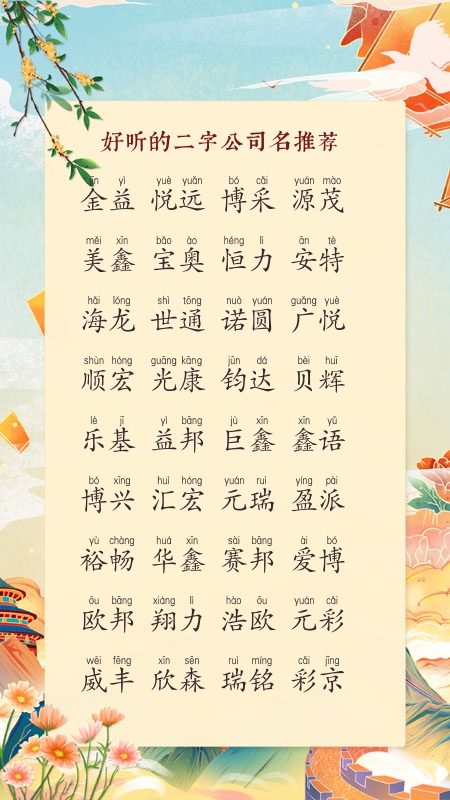 好听的二字公司名推荐
jīn yì yuè yuǎn bó cǎi yuán mào
金益 悦远 博采 源茂
měi xīn bǎo ào héng lì ān tè
美鑫 宝奥 恒力 安特
hǎi lóng shì tōng nuò yuán guǎng yuè
海龙 世通 诺圆 广悦
shùn hóng guāng kāng jūn dá bèi huī
顺宏 光康 钧达 贝辉
lè jī yì bāng jù xīn xīn yǔ
乐基 益邦 巨鑫 鑫语
bó xīng huì hóng yuán ruì yíng pài
博兴 汇宏 元瑞 盈派
yù chàng huá xīn sài bāng ài bó
裕畅 华鑫 赛邦 爱博
ōu bāng xiáng lì hào ōu yuán cǎi
欧邦 翔力 浩欧 元彩
wēi fēng xīn sēn ruì míng cǎi jīng
威丰 欣森 瑞铭 彩京